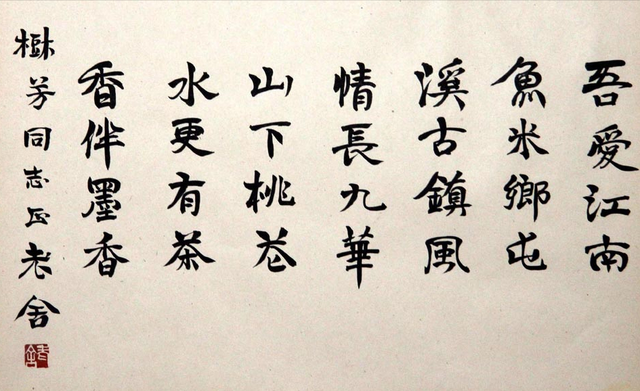 吾愛江南
魚米鄉屯
溪古鎮風
情長九華
山下桃花
水更有茶
香伴墨香
樹芳同志正老舍
老舍